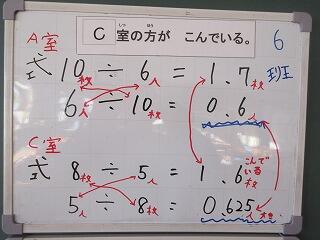 C室の方が こんでいる。
6班
A室
式 10枚 ÷ 6人 = 1.7枚
6人 ÷ 10枚 = 0.6人
C室
式 8枚 ÷ 5人 = 1.6枚
こんでいる
5人 ÷ 8枚 = 0.625人